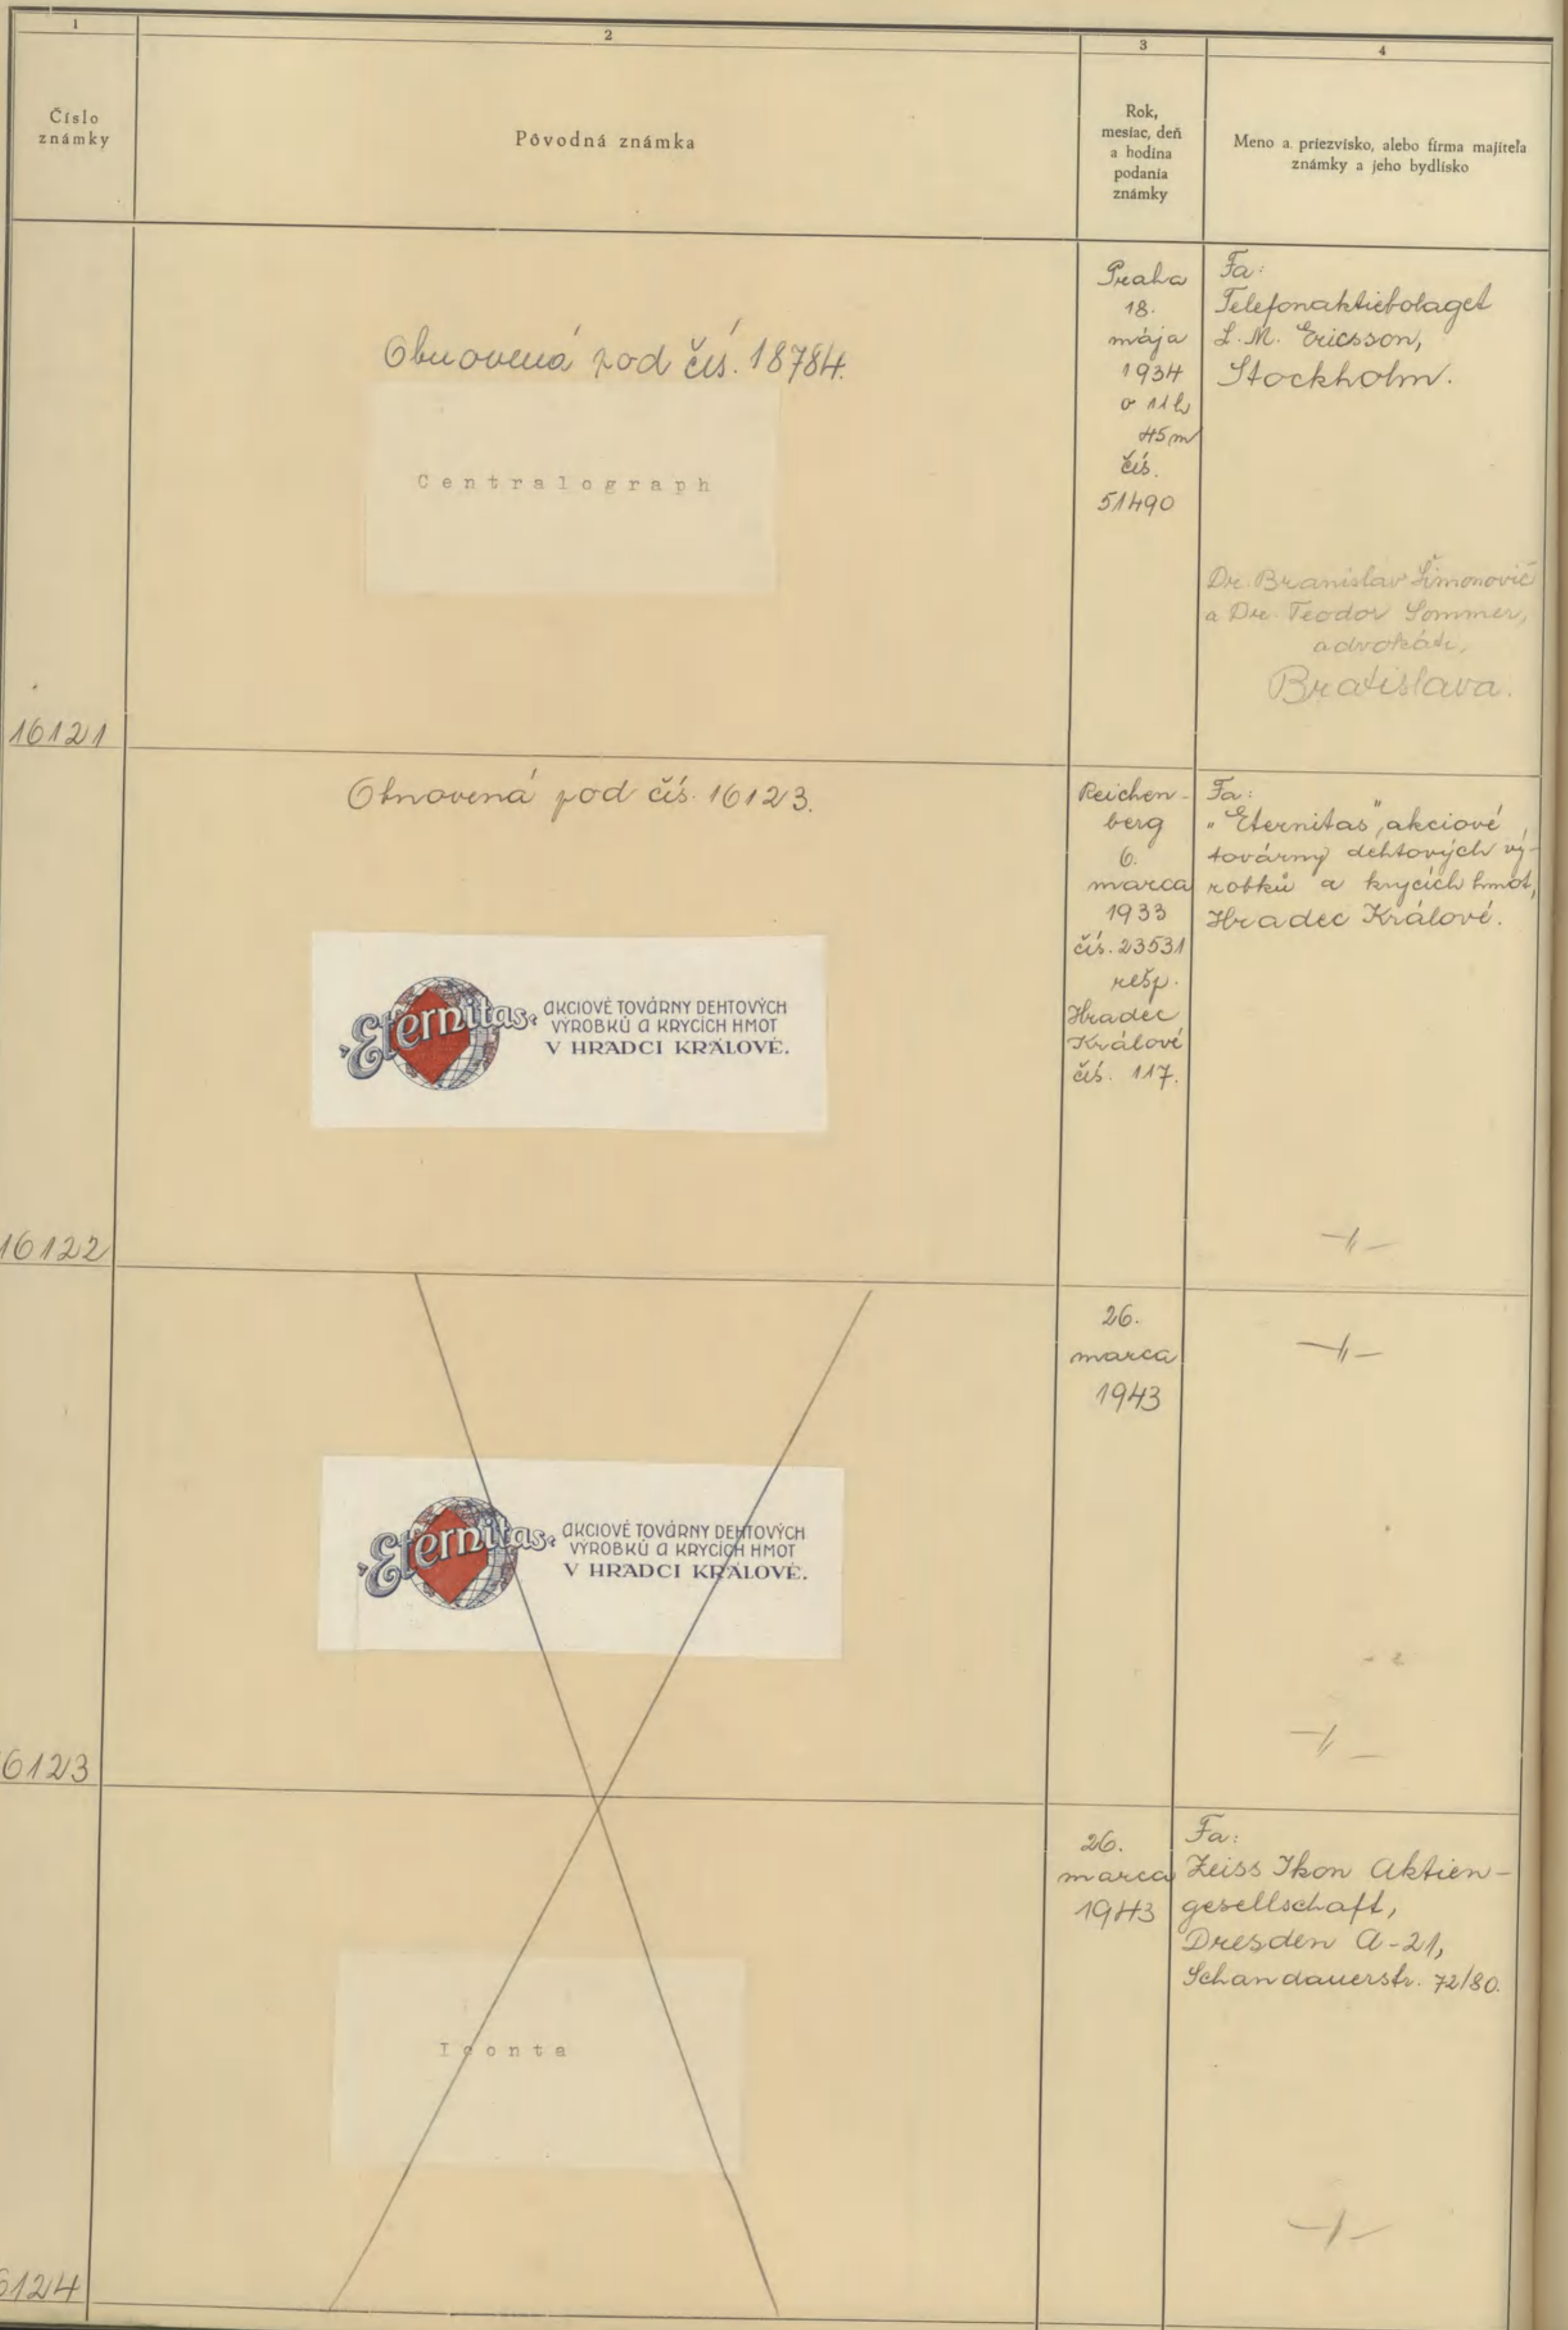 1
2
3
4
Číslo
známky
Pôvodná známka
Rok,
mesiac, deň
a hodina
podania
známky
Meno a priezvisko, alebo firma majiteľa
známky a jeho bydlisko
16121
Obnovená pod čís. 18784.
Centralograph
Praha
18.
mája
1934
o 11h
45m
čís.
51490
Fa:
Telefonaktiebolaget
L. M. Ericsson,
Stockholm.
Dr. Branislav Šimonovič
a Dr. Teodor Sommer,
advokáti,
Bratislava.
16122
Obnovená pod čís. 16123.
„Eternitas“
AKCIOVÉ TOVÁRNY DEHTOVÝCH
VÝROBKŮ A KRYCÍCH HMOT
V HRADCI KRÁLOVÉ.
Reichen-
berg
6.
marca
1933
čís. 23531
resp.
Hradec
Králové
čís. 117.
Fa:
„Eternitas“, akciové
továrny dehtových vý-
robků a krycích hmot,
Hradec Králové.
—〃—
6123
„Eternitas“
AKCIOVÉ TOVÁRNY DEHTOVÝCH
VÝROBKŮ A KRYCÍCH HMOT
V HRADCI KRÁLOVÉ.
26.
marca
1943
—〃—
—〃—
6124
Iconta
26.
marca
1943
Fa:
Zeiss Ikon Aktien-
gesellschaft,
Dresden A-21,
Schandauerstr. 72/80.
—〃—